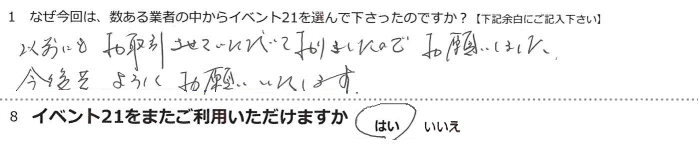 1 なぜ今回は、数ある業者の中からイベント21を選んで下さったのですか？【下記余白にご記入下さい】
以前にもお取引させていただいておりましたのでお願いしました。
今後もよろしくお願いいたします。
8 イベント21をまたご利用いただけますか はい いいえ